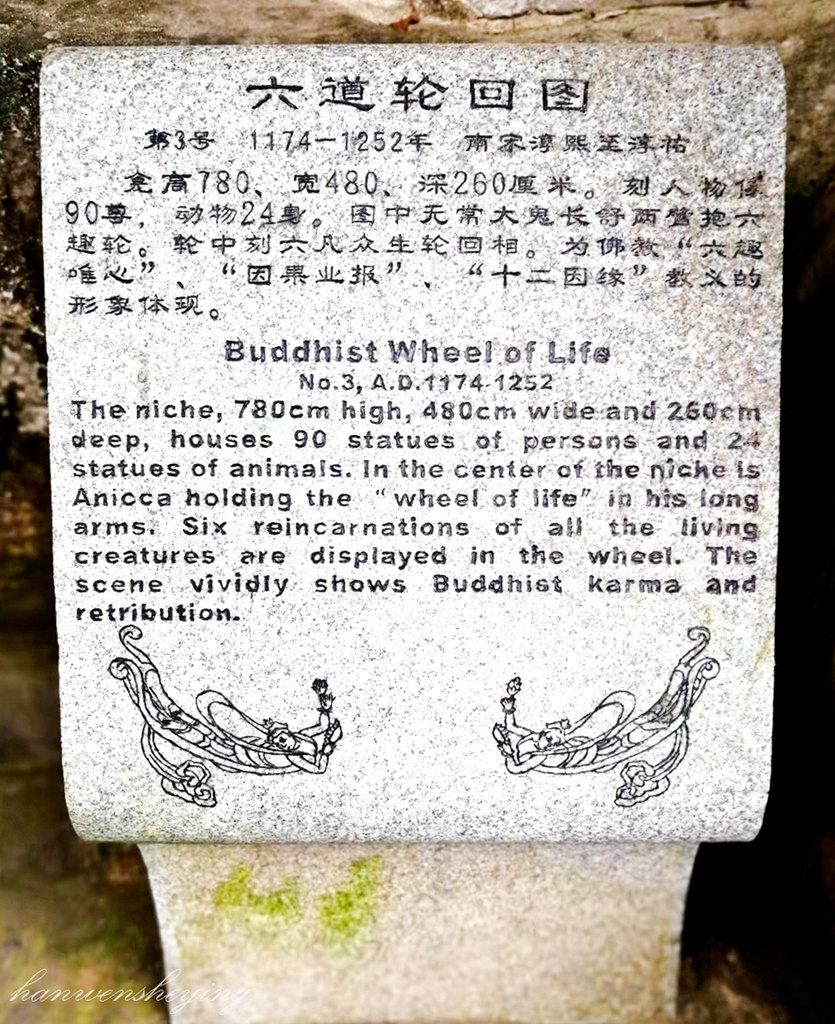 六道轮回图
第3号 1174—1252年 南宋淳熙至淳祐
龛高780、宽480、深260厘米。刻人物像
90尊，动物24身。图中无常大鬼长舒两臂抱六
趣轮。轮中刻六凡众生轮回相。为佛教“六趣
唯心”、“因果业报”、“十二因缘”教义的
形象体现。
Buddhist Wheel of Life
No.3, A.D.1174-1252
The niche, 780cm high, 480cm wide and 260cm
deep, houses 90 statues of persons and 24
statues of animals. In the center of the niche is
Anicca holding the “wheel of life” in his long
arms. Six reincarnations of all the living
creatures are displayed in the wheel. The
scene vividly shows Buddhist karma and
retribution.
hanwensheying